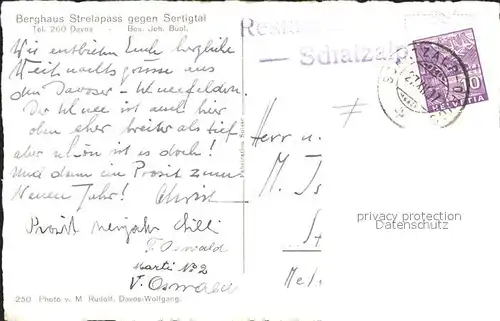 Berghaus Strelapass gegen Sertigtal
Tel. 260 Davos Bes. Joh. Büol.
Wir entbieten Euch herzliche
Weihnachtsgrüsse aus
den Davoser - Schneefeldern.
Der Schnee ist auch hier
oben eher breiter als tief
aber schön ist es doch!
Und dann ein Prosit zum
Neuen Jahr! Christ
Prosit Neujahr
F. Oswald
Marti No 2
V. Oswald
250 Photo v. M Rudolf, Davos-Wolfgang.
Schatzalp
HELVETIA
Herr u.
M.
privacy protection
Datenschutz